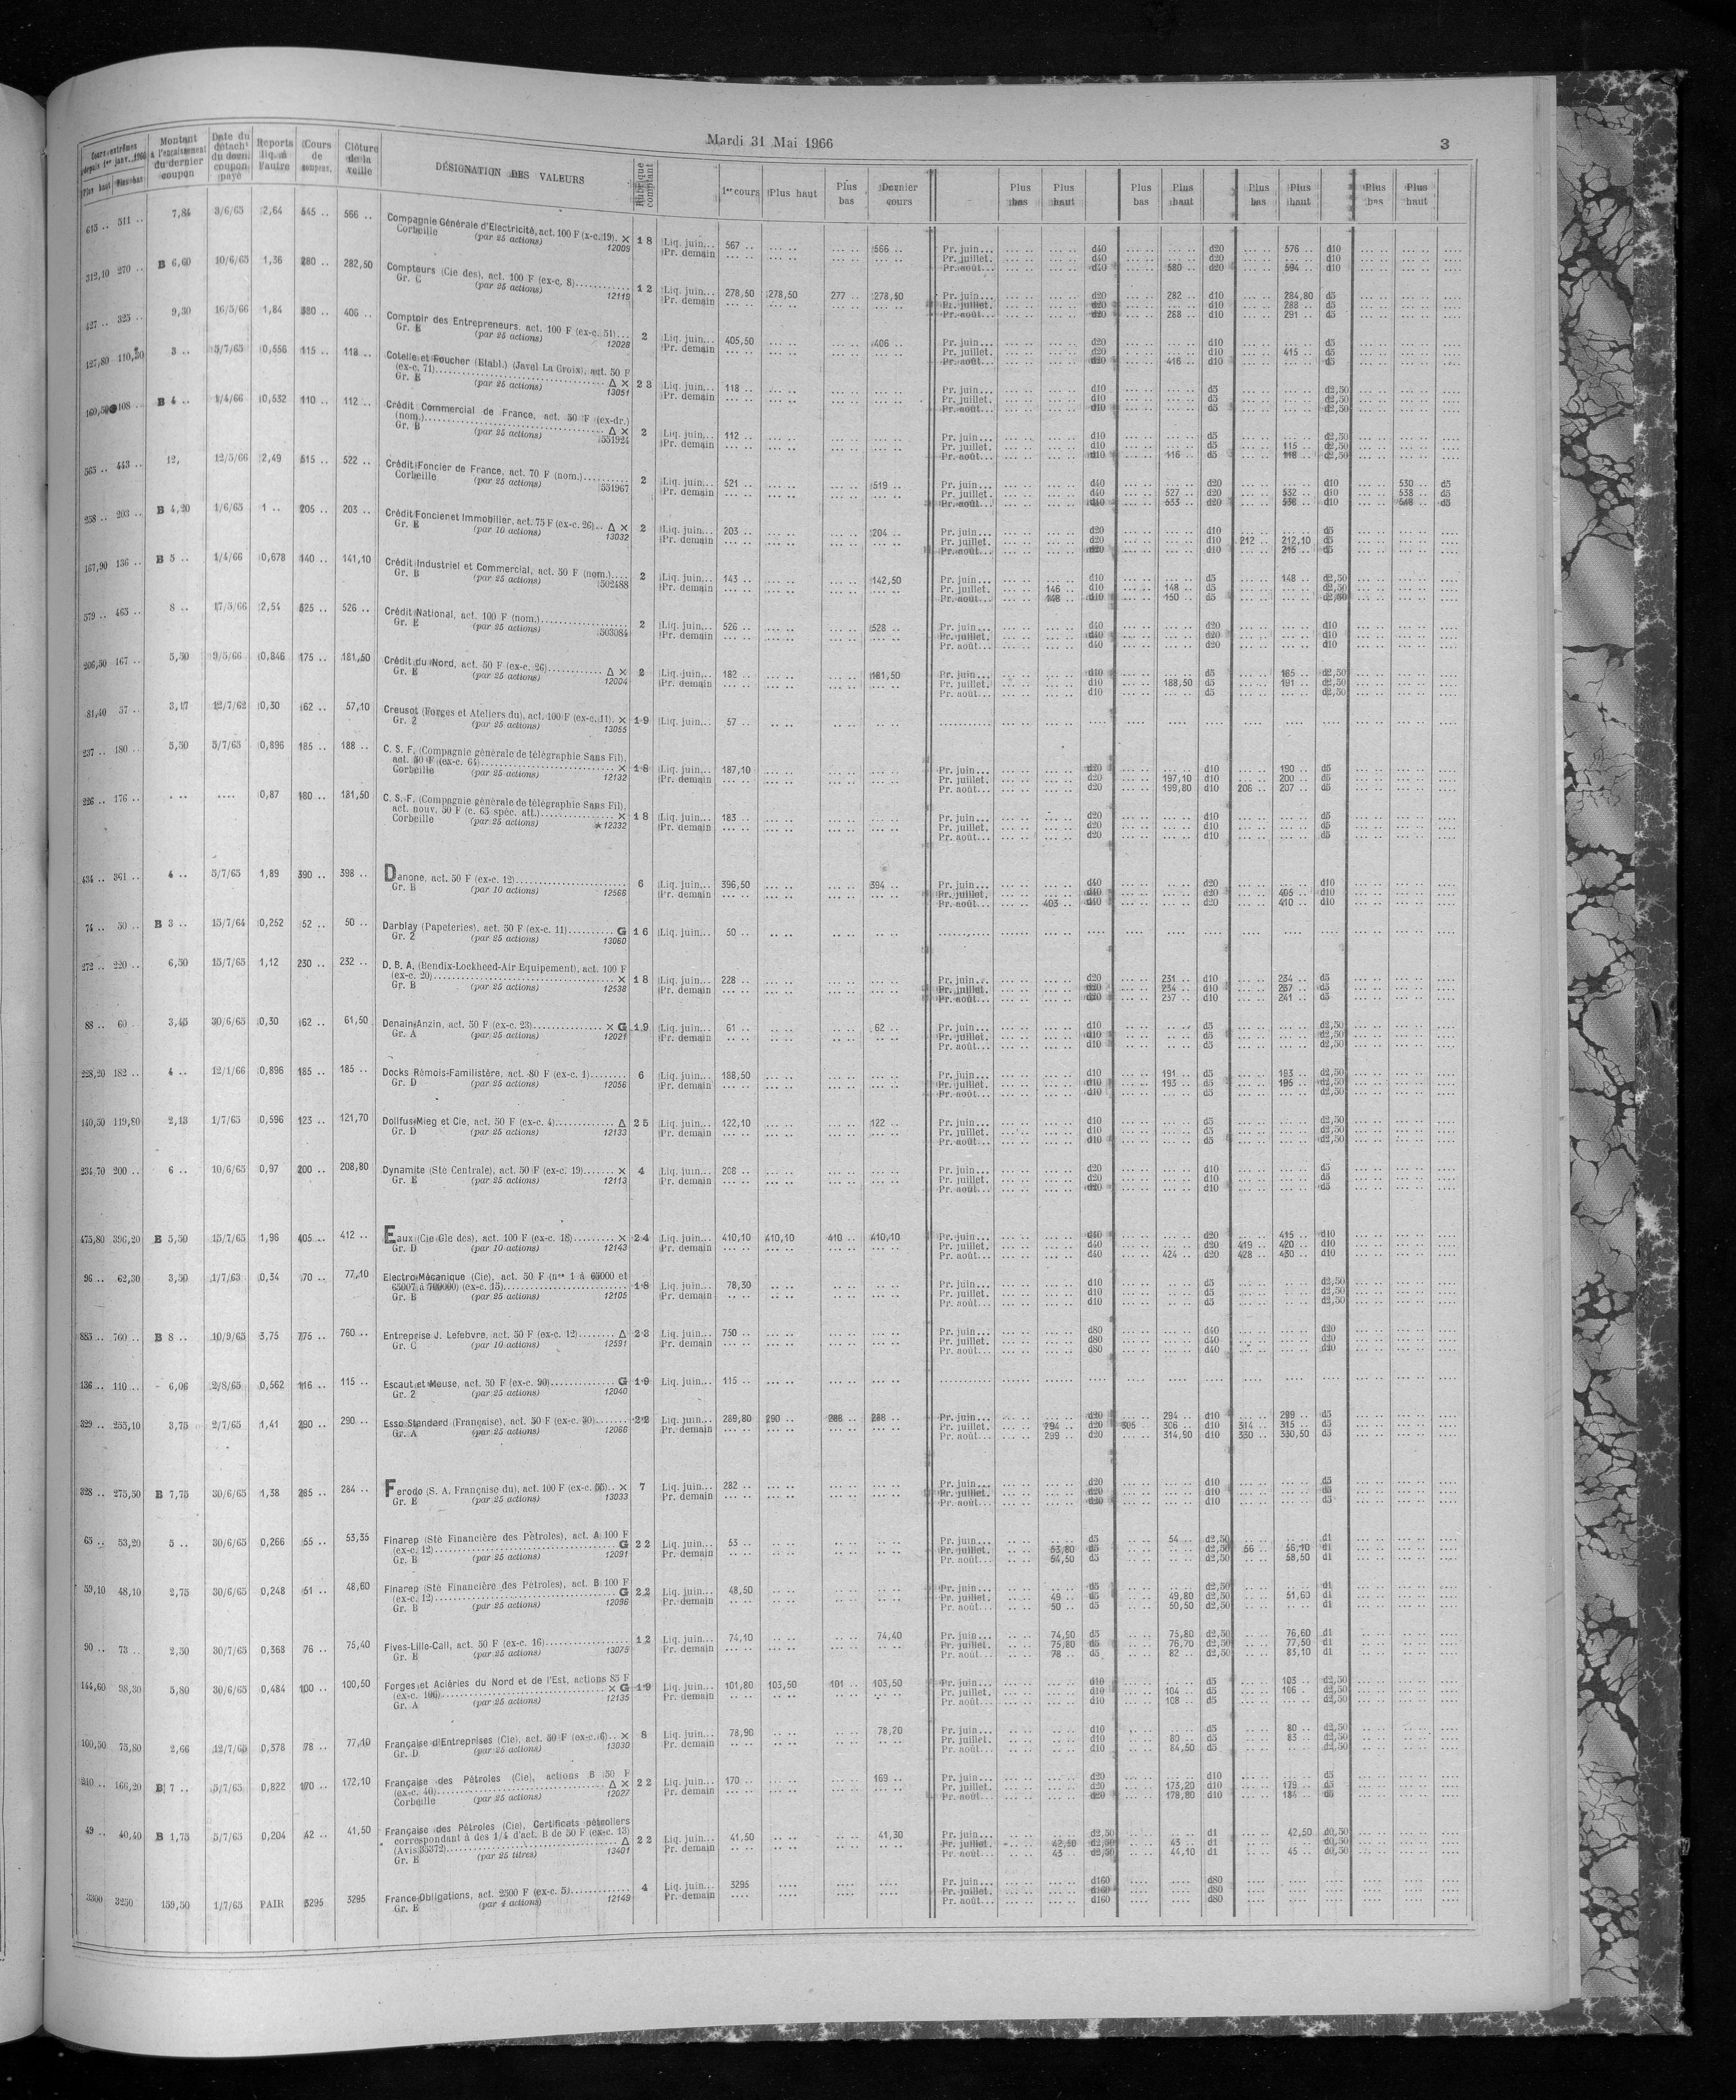 Mardi 31 Mai 1966
3
Cours extrêmes depuis 1er janv. 1966 Plus haut Plus bas | Montant à l'encaissement du dernier coupon | Date du détacht du derni coupon payé | Reports liq. à l'autre | Cours de compens. | Clôture de la veille | DÉSIGNATION DES VALEURS | Rubrique comptant | 1er cours | Plus haut | Plus bas | Dernier cours | Plus bas | Plus haut | Plus bas | Plus haut | Plus bas | Plus haut | Plus bas | Plus haut
615 .. 511 .. 7,84 3/6/65 2,64 545 .. 566 .. Compagnie Générale d'Electricité, act. 100 F (x-c. 19). × 18 Liq. juin... 567 .. 566 .. Pr. juin... d40 d20 576 .. d10
Corbeille (par 25 actions) 12009 Pr. demain Pr. juillet. d40 d20 d10
Pr. août... d40 580 .. d20 594 .. d10
312,10 270 .. B 6,60 10/6/65 1,36 280 .. 282,50 Compteurs (Cie des), act. 100 F (ex-c. 8) 12 Liq. juin... 278,50 278,50 277 .. 278,50 Pr. juin... d20 282 .. d10 284,80 d5
Gr. C (par 25 actions) 12119 Pr. demain Pr. juillet. d20 d10 288 .. d5
Pr. août... d20 288 .. d10 291 .. d5
427 .. 325 .. 9,30 16/5/66 1,84 380 .. 406 .. Comptoir des Entrepreneurs, act. 100 F (ex-c. 51) 2 Liq. juin... 405,50 406 .. Pr. juin... d20 d10 d5
Gr. E (par 25 actions) 12028 Pr. demain Pr. juillet. d20 d10 415 .. d5
Pr. août... d20 416 .. d10 d5
127,80 110,50 3 .. 5/7/65 0,556 115 .. 118 .. Cotelle et Foucher (Etabl.) (Javel La Croix), act. 50 F
(ex-c. 71) Δ × 23 Liq. juin... 118 .. Pr. juin... d10 d5 d2,50
Gr. E (par 25 actions) 13051 Pr. demain Pr. juillet. d10 d5 d2,50
Pr. août... d10 d5 d2,50
160,50 108 .. B 4 .. 1/4/66 0,532 110 .. 112 .. Crédit Commercial de France, act. 50 F (ex-dr.)
(nom.) Δ × 2 Liq. juin... 112 .. Pr. juin... d10 d5 d2,50
Gr. B (par 25 actions) 551924 Pr. demain Pr. juillet. d10 d5 115 .. d2,50
Pr. août... d10 116 .. d5 118 .. d2,50
565 .. 443 .. 12, 12/5/66 2,49 515 .. 522 .. Crédit Foncier de France, act. 70 F (nom.) 2 Liq. juin... 521 .. 519 .. Pr. juin... d40 d20 d10 530 .. d5
Corbeille (par 25 actions) 551967 Pr. demain Pr. juillet. d40 527 .. d20 532 .. d10 538 .. d5
Pr. août... d40 533 .. d20 538 .. d10 548 .. d5
238 .. 203 .. B 4,20 1/6/65 1 .. 205 .. 203 .. Crédit Foncier et Immobilier, act. 75 F (ex-c. 26).. Δ × 2 Liq. juin... 203 .. 204 .. Pr. juin... d20 d10 d5
Gr. E (par 10 actions) 13032 Pr. demain Pr. juillet. d20 d10 212 .. 212,10 d5
Pr. août... d20 d10 215 .. d5
167,90 136 .. B 5 .. 1/4/66 0,678 140 .. 141,10 Crédit Industriel et Commercial, act. 50 F (nom.) 2 Liq. juin... 143 .. 142,50 Pr. juin... d10 d5 148 .. d2,50
Gr. B (par 25 actions) 502488 Pr. demain Pr. juillet. 146 .. d10 148 .. d5 d2,50
Pr. août... 148 .. d10 150 .. d5 d2,50
579 .. 465 .. 8 .. 17/5/66 2,54 525 .. 526 .. Crédit National, act. 100 F (nom.) 2 Liq. juin... 526 .. 528 .. Pr. juin... d40 d20 d10
Gr. E (par 25 actions) 503084 Pr. demain Pr. juillet. d40 d20 d10
Pr. août... d40 d20 d10
206,50 167 .. 5,50 9/5/66 0,846 175 .. 181,50 Crédit du Nord, act. 50 F (ex-c. 26) Δ × 2 Liq. juin... 182 .. 181,50 Pr. juin... d10 d5 185 .. d2,50
Gr. E (par 25 actions) 12004 Pr. demain Pr. juillet. d10 188,50 d5 191 .. d2,50
Pr. août... d10 d5 d2,50
81,40 57 .. 3,17 12/7/62 0,30 62 .. 57,10 Creusot (Forges et Ateliers du), act. 100 F (ex-c. 11). × 19 Liq. juin... 57 ..
Gr. 2 (par 25 actions) 13055
237 .. 180 .. 5,50 5/7/65 0,896 185 .. 188 .. C. S. F. (Compagnie générale de télégraphie Sans Fil),
act. 50 F (ex-c. 64) × 18 Liq. juin... 187,10 Pr. juin... d20 d10 190 .. d5
Corbeille (par 25 actions) 12132 Pr. demain Pr. juillet. d20 197,10 d10 200 .. d5
Pr. août... d20 199,80 d10 206 .. 207 .. d5
226 .. 176 .. 0,87 180 .. 181,50 C. S. F. (Compagnie générale de télégraphie Sans Fil),
act. nouv. 50 F (c. 65 spéc. att.) × 18 Liq. juin... 183 .. Pr. juin... d20 d10 d5
Corbeille (par 25 actions) ★12332 Pr. demain Pr. juillet. d20 d10 d5
Pr. août... d20 d10 d5
434 .. 361 .. 4 .. 5/7/65 1,89 390 .. 398 .. Danone, act. 50 F (ex-c. 12) 6 Liq. juin... 396,50 394 .. Pr. juin... d40 d20 d10
Gr. B (par 10 actions) 12566 Pr. demain Pr. juillet. d40 d20 405 .. d10
Pr. août... 403 .. d40 d20 410 .. d10
74 .. 50 .. B 3 .. 15/7/64 0,252 52 .. 50 .. Darblay (Papeteries), act. 50 F (ex-c. 11) G 16 Liq. juin... 50 ..
Gr. 2 (par 25 actions) 13060
272 .. 220 .. 6,50 15/7/65 1,12 230 .. 232 .. D. B. A. (Bendix-Lockheed-Air Equipement), act. 100 F
(ex-c. 20) × 18 Liq. juin... 228 .. Pr. juin... d20 231 .. d10 234 .. d5
Gr. B (par 25 actions) 12538 Pr. demain Pr. juillet. d20 234 .. d10 237 .. d5
Pr. août... d20 237 .. d10 241 .. d5
88 .. 60 .. 3,45 30/6/65 0,30 62 .. 61,50 Denain-Anzin, act. 50 F (ex-c. 23) × G 19 Liq. juin... 61 .. 62 .. Pr. juin... d10 d5 d2,50
Gr. A (par 25 actions) 12021 Pr. demain Pr. juillet. d10 d5 d2,50
Pr. août... d10 d5 d2,50
228,20 182 .. 4 .. 12/1/66 0,896 185 .. 185 .. Docks Rémois-Familistère, act. 80 F (ex-c. 1) 6 Liq. juin... 188,50 Pr. juin... d10 191 .. d5 193 .. d2,50
Gr. D (par 25 actions) 12056 Pr. demain Pr. juillet. d10 193 .. d5 195 .. d2,50
Pr. août... d10 d5 d2,50
140,50 119,80 2,13 1/7/65 0,596 123 .. 121,70 Dollfus-Mieg et Cie, act. 50 F (ex-c. 4) Δ 25 Liq. juin... 122,10 122 .. Pr. juin... d10 d5 d2,50
Gr. D (par 25 actions) 12133 Pr. demain Pr. juillet. d10 d5 d2,50
Pr. août... d10 d5 d2,50
234,70 200 .. 6 .. 10/6/65 0,97 200 .. 208,80 Dynamite (Sté Centrale), act. 50 F (ex-c. 19) × 4 Liq. juin... 208 .. Pr. juin... d20 d10 d5
Gr. E (par 25 actions) 12113 Pr. demain Pr. juillet. d20 d10 d5
Pr. août... d20 d10 d5
475,80 396,20 B 5,50 15/7/65 1,96 405 .. 412 .. Eaux (Cie Gle des), act. 100 F (ex-c. 18) × 24 Liq. juin... 410,10 410,10 410 .. 410,10 Pr. juin... d40 d20 415 .. d10
Gr. D (par 10 actions) 12143 Pr. demain Pr. juillet. d40 d20 419 .. 420 .. d10
Pr. août... d40 424 .. d20 428 .. 430 .. d10
96 .. 62,30 3,50 1/7/63 0,34 70 .. 77,10 Electro-Mécanique (Cie), act. 50 F (nos 1 à 65000 et
65007 à 700000) (ex-c. 15) 18 Liq. juin... 78,30 Pr. juin... d10 d5 d2,50
Gr. B (par 25 actions) 12105 Pr. demain Pr. juillet. d10 d5 d2,50
Pr. août... d10 d5 d2,50
885 .. 760 .. B 8 .. 10/9/65 3,75 775 .. 760 .. Entreprise J. Lefebvre, act. 50 F (ex-c. 12) Δ 23 Liq. juin... 750 .. Pr. juin... d80 d40 d20
Gr. C (par 10 actions) 12591 Pr. demain Pr. juillet. d80 d40 d20
Pr. août... d80 d40 d20
136 .. 110 .. 6,06 2/8/65 0,562 116 .. 115 .. Escaut et Meuse, act. 50 F (ex-c. 90) G 19 Liq. juin... 115 ..
Gr. 2 (par 25 actions) 12040
329 .. 255,10 3,75 2/7/65 1,41 290 .. 290 .. Esso Standard (Française), act. 50 F (ex-c. 30) 22 Liq. juin... 289,80 290 .. 288 .. 288 .. Pr. juin... d20 294 .. d10 299 .. d5
Gr. A (par 25 actions) 12066 Pr. demain Pr. juillet. 294 .. d20 305 306 .. d10 314 .. 315 .. d5
Pr. août... 299 .. d20 314,90 d10 330 .. 330,50 d5
328 .. 275,50 B 7,75 30/6/65 1,38 285 .. 284 .. Ferodo (S. A. Française du), act. 100 F (ex-c. 66).. × 7 Liq. juin... 282 .. Pr. juin... d20 d10 d5
Gr. E (par 25 actions) 13033 Pr. demain Pr. juillet. d20 d10 d5
Pr. août... d20 d10 d5
65 .. 53,20 5 .. 30/6/65 0,266 55 .. 53,35 Finarep (Sté Financière des Pétroles), act. A 100 F
(ex-c. 12) G 22 Liq. juin... 53 .. Pr. juin... d5 54 .. d2,50 d1
Gr. B (par 25 actions) 12091 Pr. demain Pr. juillet. 53,80 d5 d2,50 56 .. 56,10 d1
Pr. août... 54,50 d5 d2,50 58,50 d1
59,10 48,10 2,75 30/6/65 0,248 51 .. 48,60 Finarep (Sté Financière des Pétroles), act. B 100 F
(ex-c. 12) G 22 Liq. juin... 48,50 Pr. juin... d5 d2,50 d1
Gr. B (par 25 actions) 12096 Pr. demain Pr. juillet. 49 .. d5 49,80 d2,50 51,60 d1
Pr. août... 50 .. d5 50,50 d2,50 d1
90 .. 73 .. 2,50 30/7/65 0,368 76 .. 75,40 Fives-Lille-Cail, act. 50 F (ex-c. 16) 12 Liq. juin... 74,10 74,40 Pr. juin... 74,50 d5 75,80 d2,50 76,60 d1
Gr. E (par 25 actions) 13075 Pr. demain Pr. juillet. 75,80 d5 76,70 d2,50 77,50 d1
Pr. août... 78 .. d5 82 .. d2,50 83,10 d1
144,60 98,30 5,80 30/6/65 0,484 100 .. 100,50 Forges et Aciéries du Nord et de l'Est, actions 85 F
(ex-c. 106) × G 19 Liq. juin... 101,80 103,50 101 .. 103,50 Pr. juin... d10 d5 103 .. d2,50
Gr. A (par 25 actions) 12135 Pr. demain Pr. juillet. d10 104 .. d5 106 .. d2,50
Pr. août... d10 108 .. d5 d2,50
100,50 75,80 2,66 12/7/65 0,378 78 .. 77,10 Française d'Entreprises (Cie), act. 50 F (ex-c. 6).. × 8 Liq. juin... 78,90 78,20 Pr. juin... d10 d5 80 .. d2,50
Gr. D (par 25 actions) 13030 Pr. demain Pr. juillet. d10 80 .. d5 83 .. d2,50
Pr. août... d10 84,50 d5 d2,50
210 .. 166,20 B 7 .. 5/7/65 0,822 170 .. 172,10 Française des Pétroles (Cie), actions B 50 F
(ex-c. 40) Δ × 22 Liq. juin... 170 .. 169 .. Pr. juin... d20 d10 d5
Corbeille (par 25 actions) 12027 Pr. demain Pr. juillet. d20 173,20 d10 179 .. d5
Pr. août... d20 178,80 d10 184 .. d5
49 .. 40,40 B 1,75 5/7/65 0,204 42 .. 41,50 Française des Pétroles (Cie), Certificats pétroliers
correspondant à des 1/4 d'act. B de 50 F (ex-c. 13)
(Avis 35372) Δ 22 Liq. juin... 41,50 41,30 Pr. juin... d2,50 d1 42,50 d0,50
Gr. E (par 25 titres) 13401 Pr. demain Pr. juillet. 42,50 d2,50 43 .. d1 d0,50
Pr. août... 43 .. d2,50 44,10 d1 45 .. d0,50
3300 3250 159,50 1/7/65 PAIR 3295 3295 France-Obligations, act. 2500 F (ex-c. 5) 4 Liq. juin... 3295 Pr. juin... d160 d80
Gr. E (par 4 actions) 12149 Pr. demain Pr. juillet. d160 d80
Pr. août... d160 d80